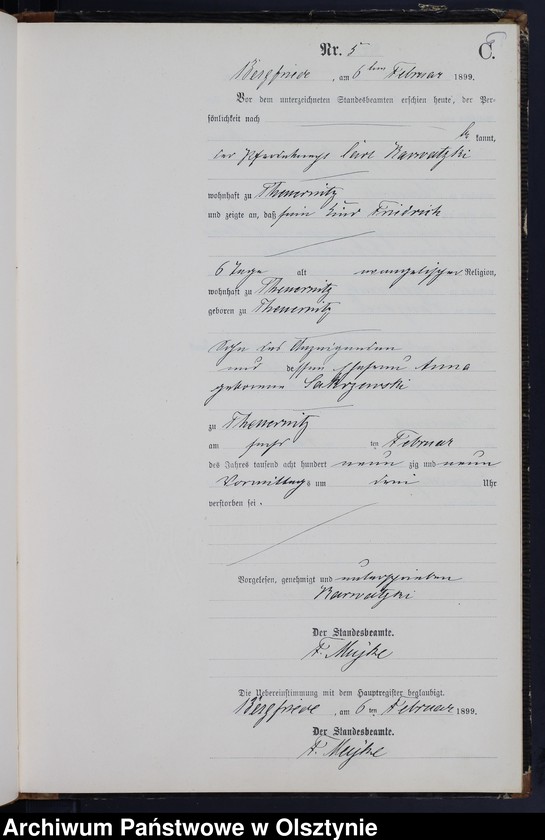 Nr. 5
C.
Bergfriede, am 6ten Februar 1899.
Vor dem unterzeichneten Standesbeamten erschien heute, der Per-
sönlichkeit nach
be kannt,
der Pferdeknecht Carl Karwatzki
wohnhaft zu Theuernitz
und zeigte an, daß sein Kind Friedrich
6 Tage alt evangelischer Religion,
wohnhaft zu Theuernitz
geboren zu Theuernitz
Sohn des Anzeigenden
und dessen Ehefrau Anna
geborene Sakrzewski
zu Theuernitz
am sechsten Februar
des Jahres tausend acht hundert neun zig und neun
Vormittags um drei Uhr
verstorben sei.
Vorgelesen, genehmigt und unterschrieben
Karwatzki
Der Standesbeamte.
F.
Die Uebereinstimmung mit dem Hauptregister beglaubigt.
Bergfriede, am 6ten Februar 1899.
Der Standesbeamte.
F.
Archiwum Państwowe w Olsztynie